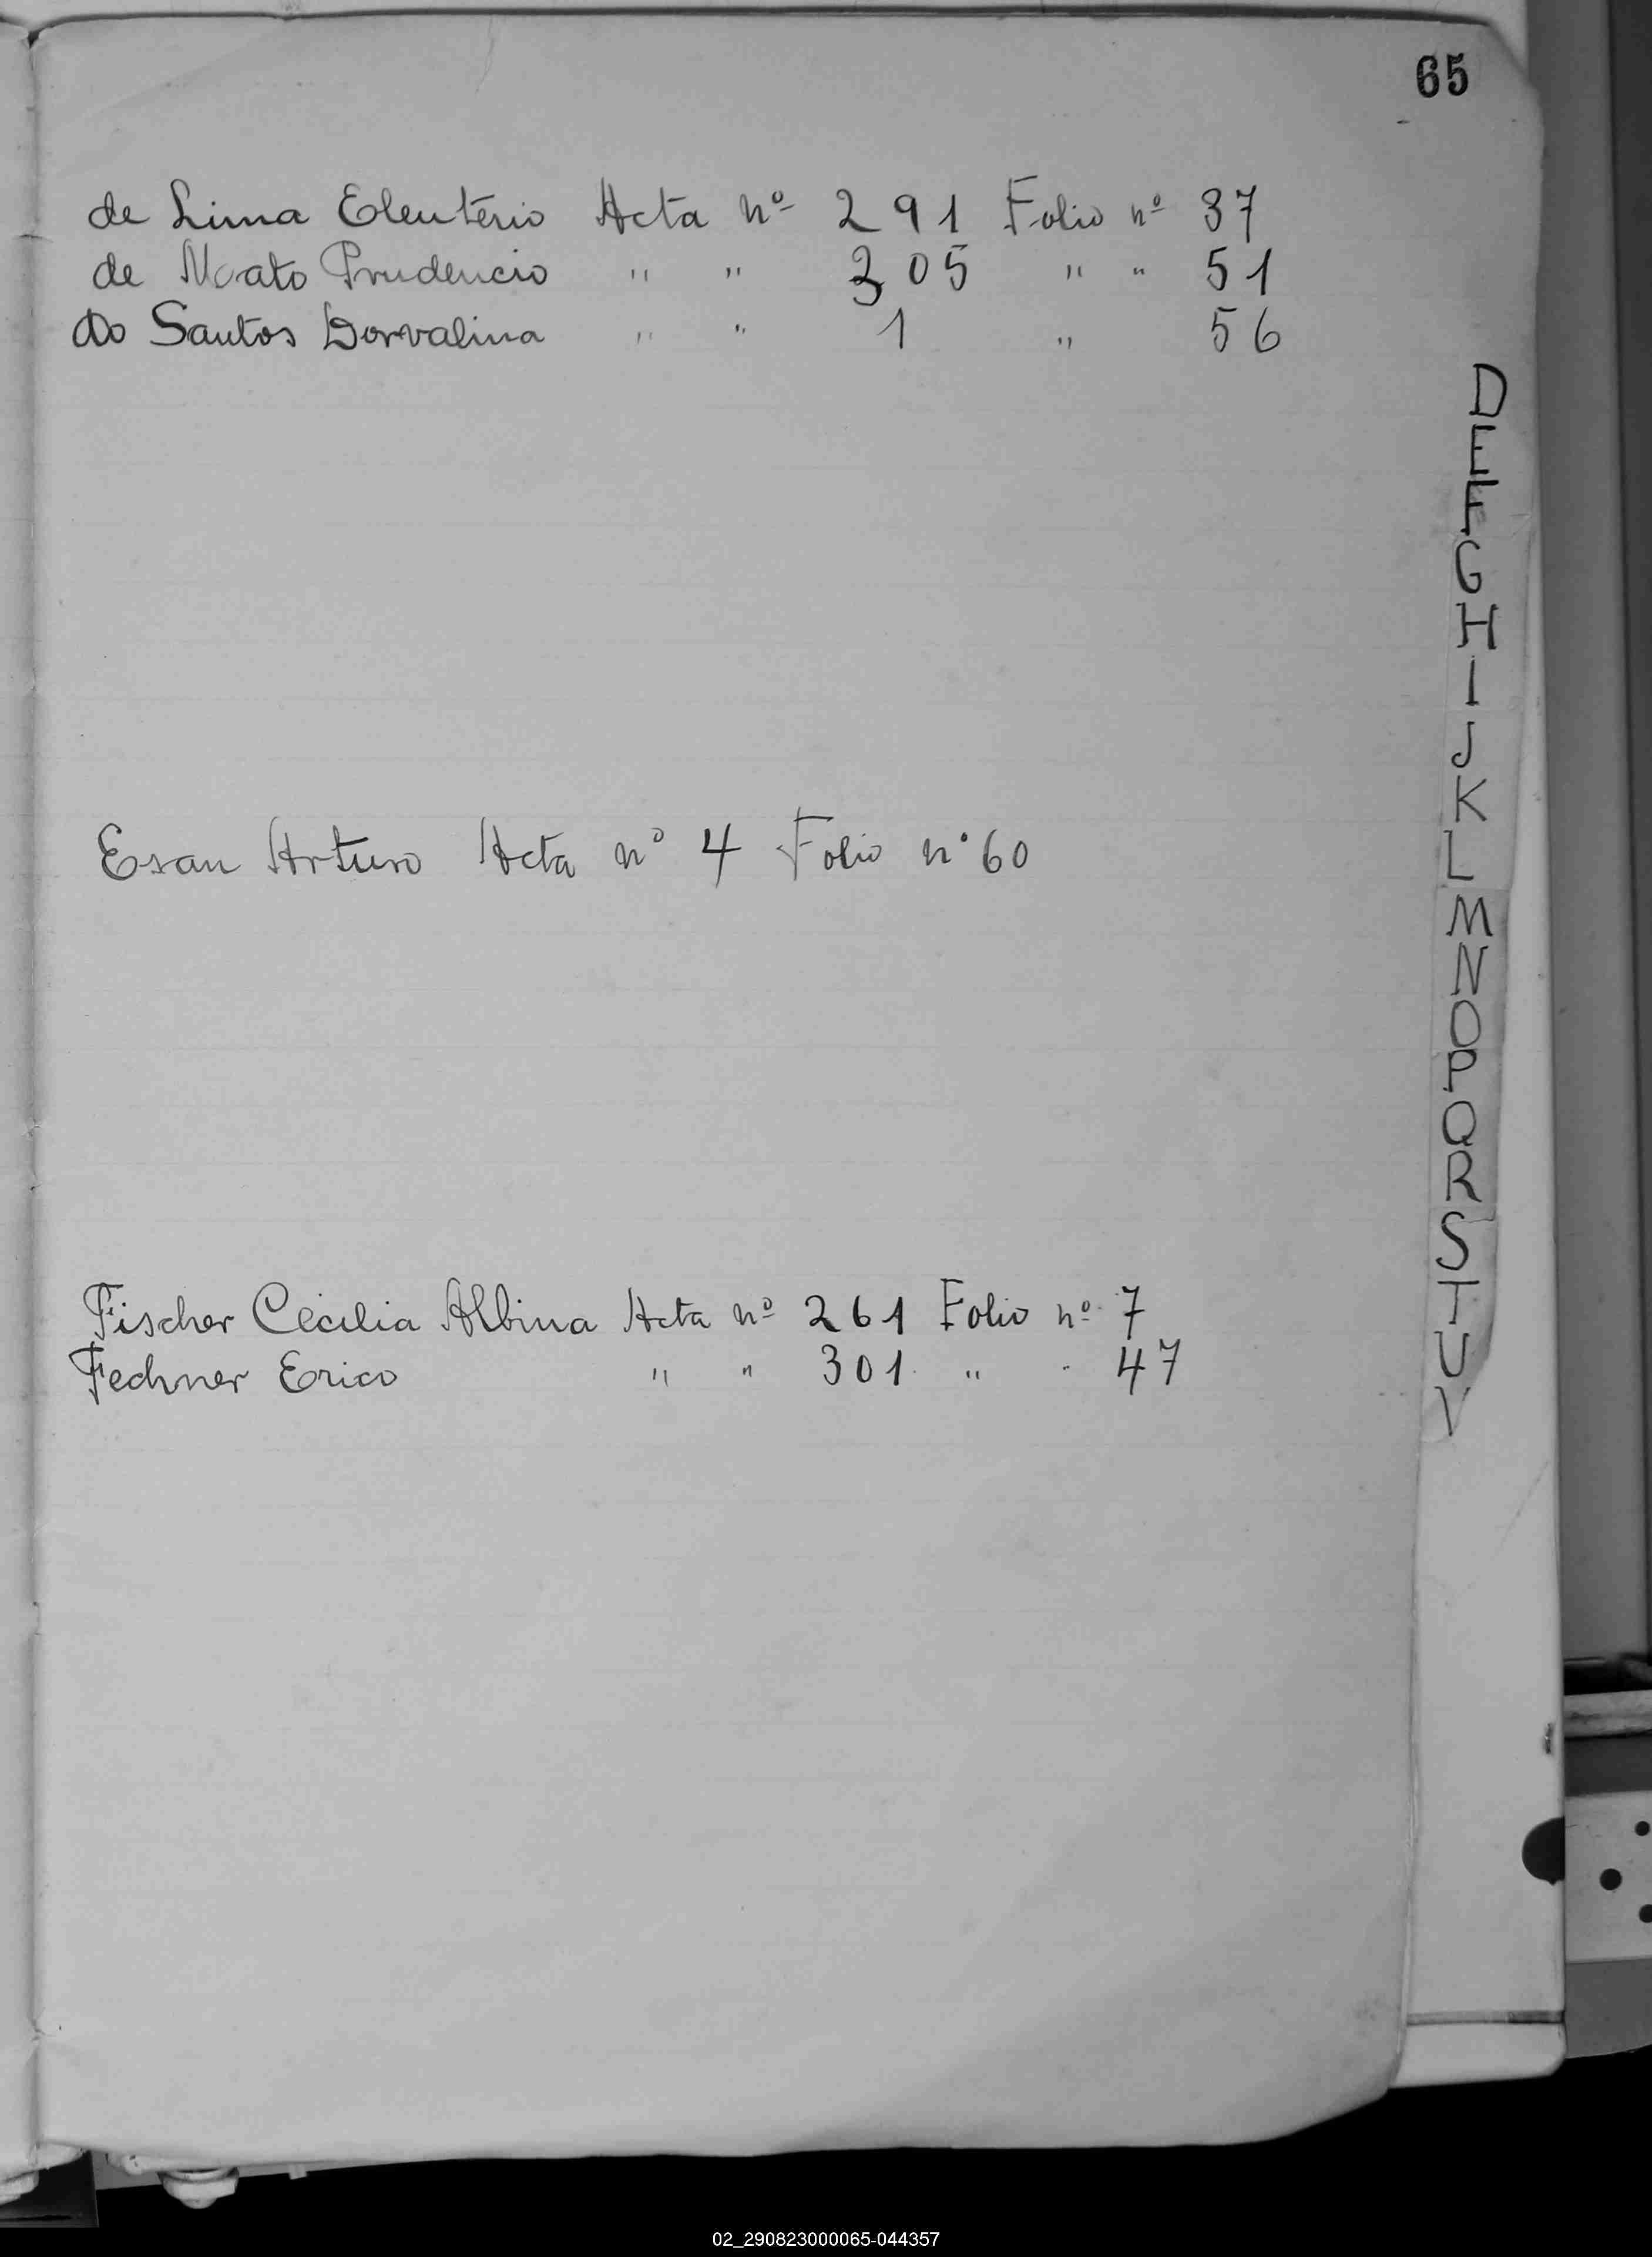 65
de Lima Eleutério Acta nº 291 Folio nº 37
de Morato Prudencio " " 305 " " 51
do Santos Dorvalina " " 1 " 56
Esau Arturo Acta nº 4 Folio nº 60
Fischer Cécilia Albina Acta nº 261 Folio nº 7
Fechner Erico " " 301 " " 47
D
E
F
G
H
I
J
K
L
M
N
O
P
Q
R
S
T
U
V
02_290823000065-044357